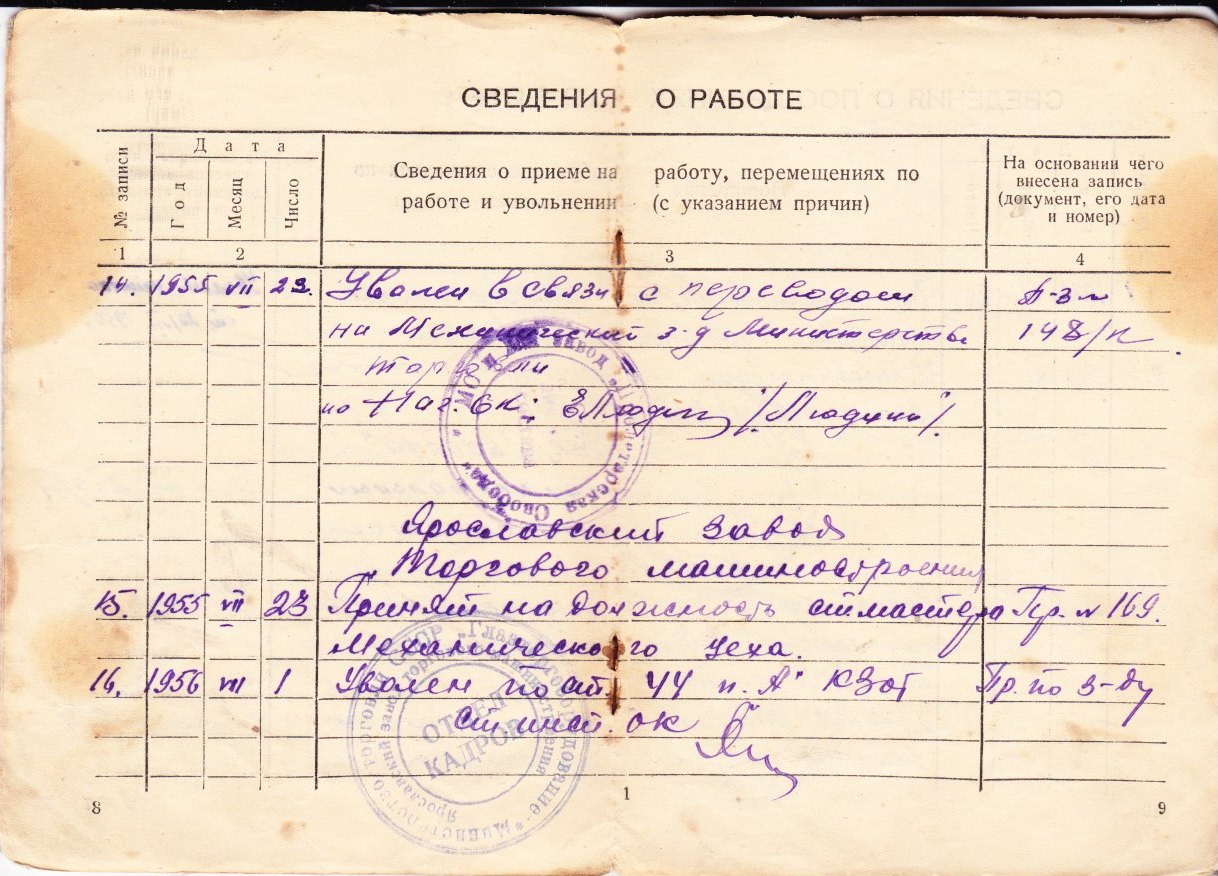 СВЕДЕНИЯ О РАБОТЕ
№ записи
Дата
Год
Месяц
Число
Сведения о приеме на работу, перемещениях по
работе и увольнении (с указанием причин)
На основании чего
внесена запись
(документ, его дата
и номер)
1 2 3 4
14. 1955 VII 23. Уволен в связи с переводом
на Механический з-д Министерства 148/к
торговли
Нач. ОК: /Людин/.
завод "Пролетарская Свобода"
Ярославский завод
Торгового машиностроения
15. 1955 VII 23 Принят на должность ст мастера Пр. № 169.
Механического цеха.
16. 1956 VII 1 Уволен по ст. 44 п. "А" КЗОТ Пр. по з-ду
ст инсп. ОК
ОТДЕЛ
КАДРОВ
Министерство торговли СССР
Ярославский завод торгового машиностроения
8 1 9